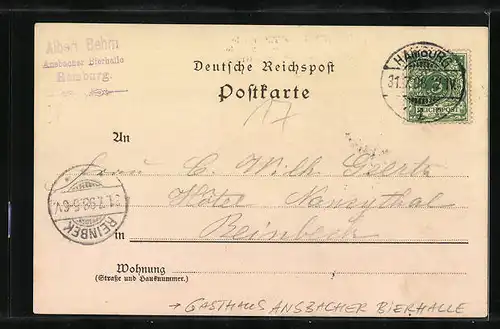 Albert Behm
Ansbacher Bierhalle
Hamburg.
Deutsche Reichspost
Postkarte
HAMBURG
31.7.98
REICHSPOST
17
An
Herrn C. Wilh. Gertz
Hôtel Nancythal
in Reinbeck
31.7.98.5-6V.
REINBEK
Wohnung
(Straße und Hausnummer.)
→ GASTHAUS ANSBACHER BIERHALLE